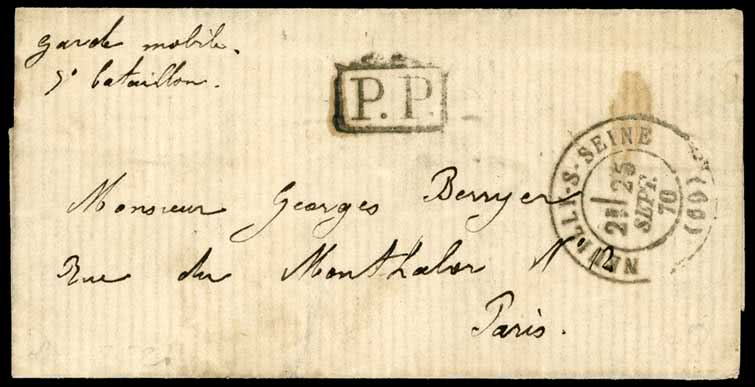 garde mobile.
5º bataillon.
P.P.
NEUILLY-S-SEINE (60)
2E 25
SEPT.
70
Monsieur Georges Berryer
Rue du Monthabor Nº 12
Paris.